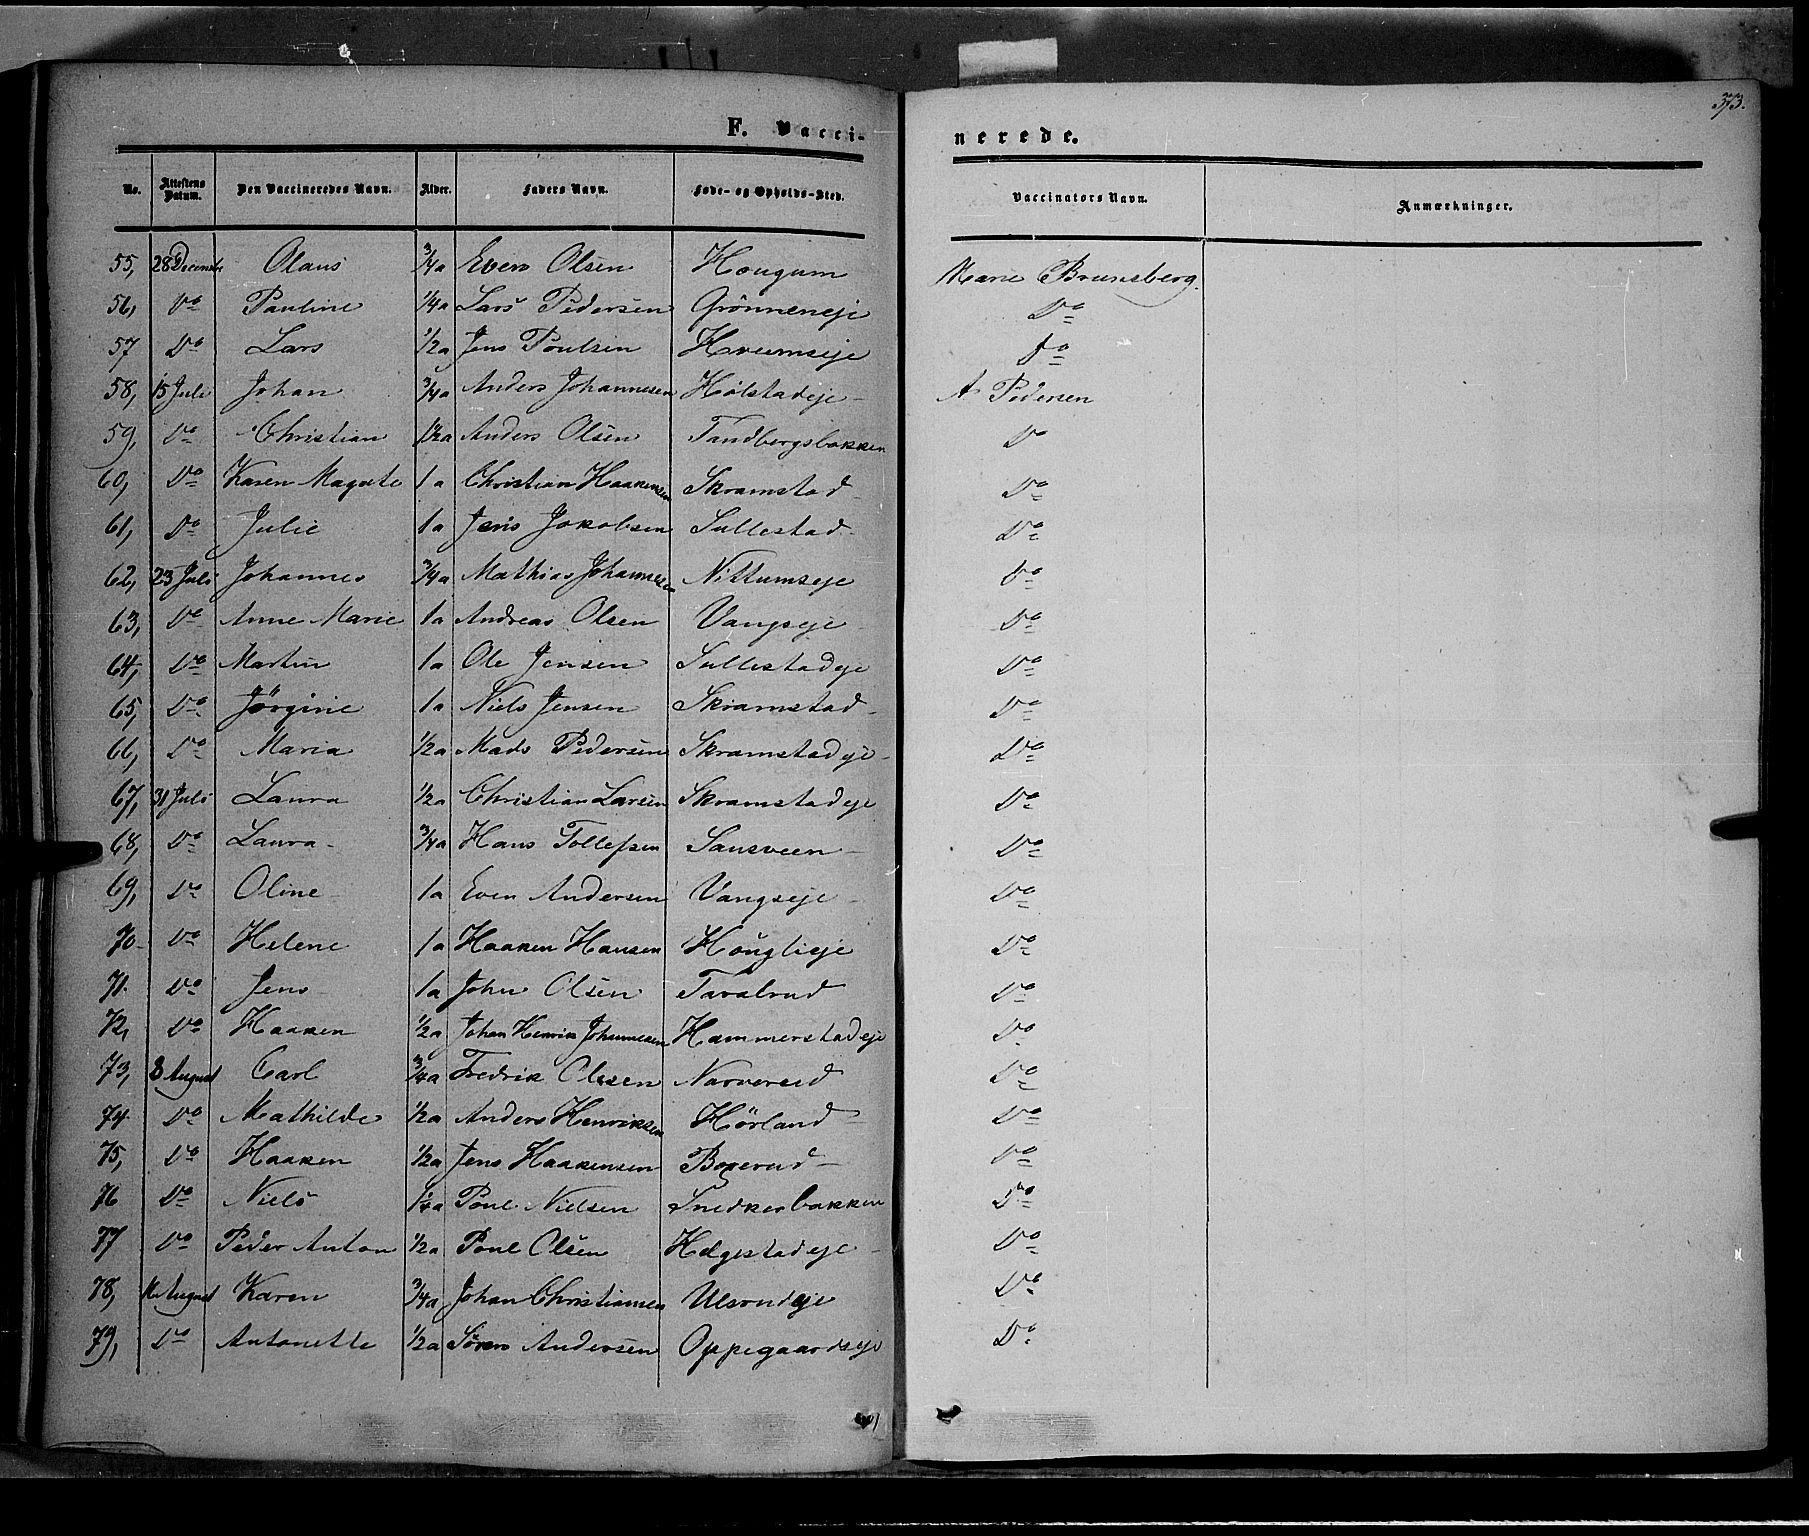 373.
F. Vacci- nerede.
No. Attestens Datum. Den Vaccineredes Navn. Alder. Faders Navn. Føde- og Opholds-Sted. Vaccinators Navn. Anmærkninger.
55, 28 Decembr Olaus 3/4 a Even Olsen Hougum Marie Brunsberg.
56, Do Pauline 1/4 a Lars Pedersen Grönneneje Do
57 Do Lars 1/2 a Jens Poulsen Hveemseje Do
58, 15 Juli Johan 3/4 a Anders Johannesen Hölstadeje A Pedersen
59, Do Christian 1 1/2 a Anders Olsen Tandbergsbakken Do
60, Do Karen Magrete 1 a Christian Haakensen Skramstad Do
61, Do Julie 1 a Jens Jakobsen Sullestad Do
62, 23 Juli Johannes 3/4 a Mathias Johannesen Nittumseje Do
63, Do Anne Marie 1 a Andreas Olsen Vangseje Do
64, Do Martin 1 a Ole Jensen Sullestadeje Do
65, Do Jörgine 1 a Niels Jensen Skramstad Do
66, Do Maria 1/2 a Mads Pedersen Skramstadeje Do
67, 31 Juli Laura 1/2 a Christian Larsen Skramstadeje Do
68, Do Laura 3/4 a Hans Tollefsen Sausveen Do
69, Do Oline 1 a Even Andersen Vangseje Do
70 Do Helene 1 a Haaken Hansen Houglieje Do
71. Do Jens 1 a John Olsen Do
72, Do Haaken 1/2 a Johan Henrik Johannesen Hammerstadeje Do
73, 8 August Carl 3/4 a Fredrik Olssen Narverud Do
74 Do Mathilde 1/2 a Anders Henriksen Hörland Do
75, Do Haaken 1/2 a Jens Haakensen Do
76 Do Niels 1 1/4 a Poul Nielsen Snedkerbakken Do
77 Do Peder Anton 1/2 a Poul Olsen Helgestadeje Do
78, August Karen 3/4 a Johan Christiansen Ulsrudeje Do
79, Do Antonette 1/2 a Sören Andersen Oppegaardseje Do